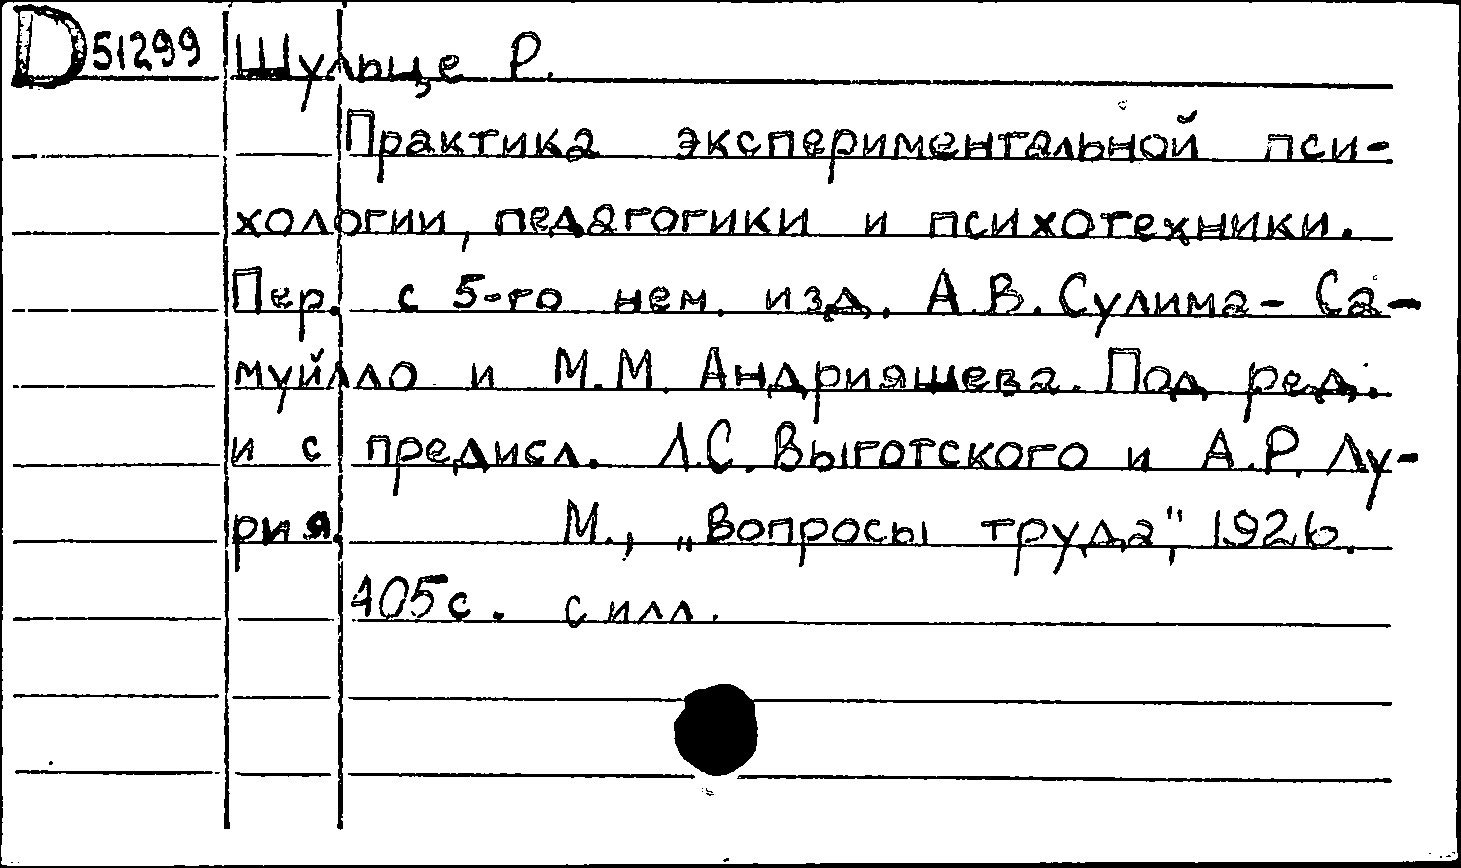 D 51299 Шульце Р.
Практика экспериментальной пси-
хологии, педагогики и психотехники.
Пер. с 5-го нем. изд. А.В. Сулима-Са-
муйлло и М.М. Андрияшева. Под ред.
и с предисл. Л.С. Выготского и А.Р. Лу-
рия. М., „Вопросы труда", 1926.
405 с. с илл.